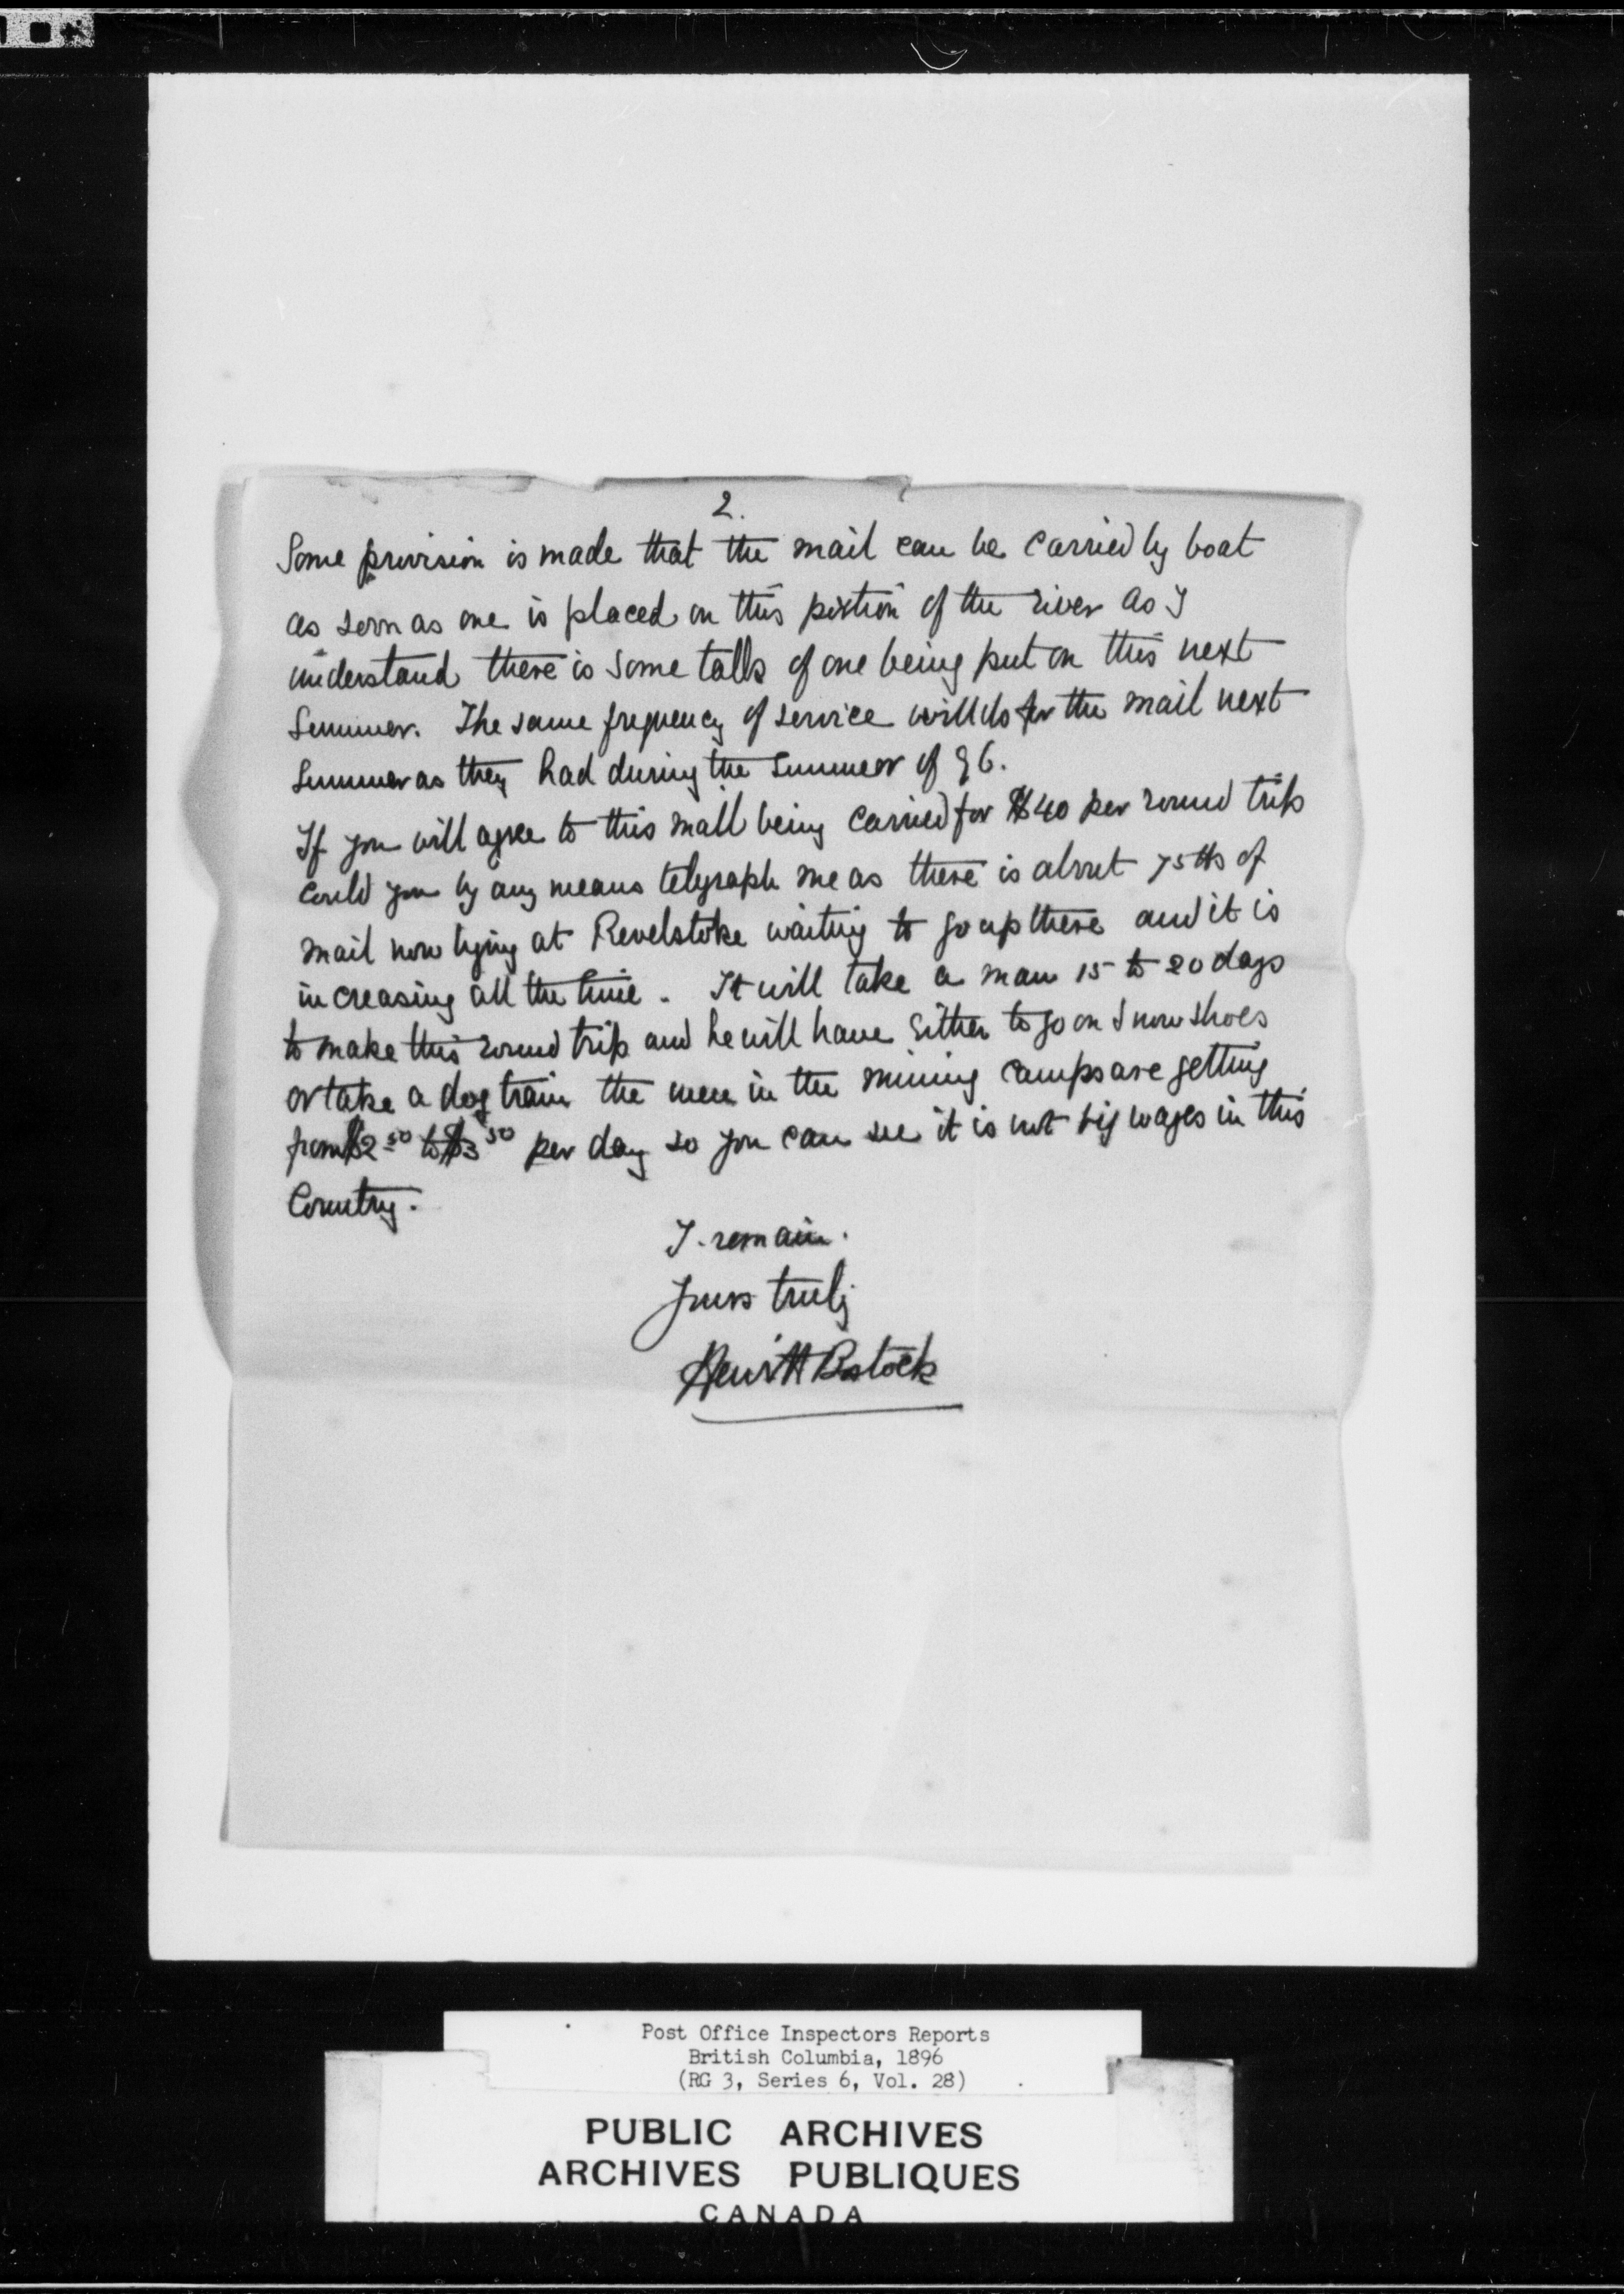 2.
Some provision is made that the mail can be carried by boat
as soon as one is placed on this portion of the river as I
understand there is some talk of one being put on this next
Summer. The same frequency of service will do for the mail next
Summer as they had during the Summer of 96.
If you will agree to this mail being carried for $40 per round trip
could you by any means telegraph me as there is about 75 lbs of
mail now lying at Revelstoke waiting to go up there and it is
increasing all the time. It will take a man 15 to 20 days
to make this round trip and he will have either to go on snow shoes
or take a dog train the men in the mining camps are getting
from $2 50 to $3 50 per day so you can see it is not big wages in this
Country.
I remain.
Yours truly
Hewitt Bostock
Post Office Inspectors Reports
British Columbia, 1896
(RG 3, Series 6, Vol. 28)
PUBLIC ARCHIVES
ARCHIVES PUBLIQUES
CANADA